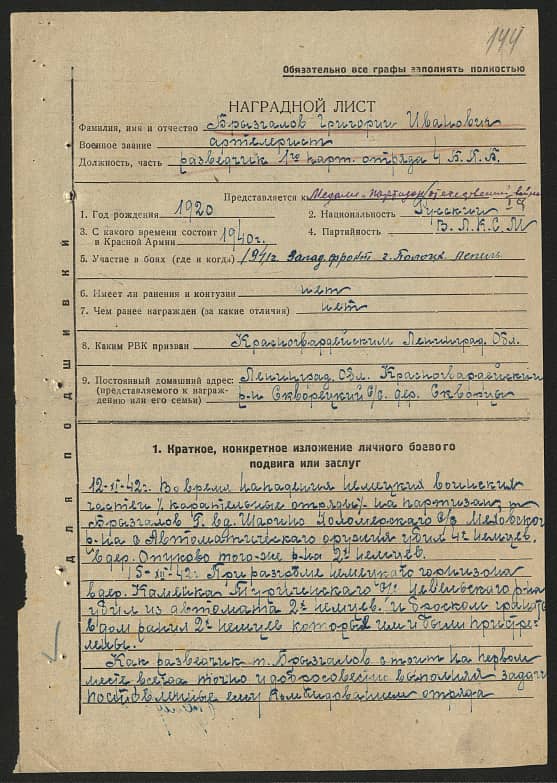 144
Обязательно все графы заполнять полностью
НАГРАДНОЙ ЛИСТ
Фамилия, имя и отчество Брызгалов Григорий Иванович
Военное звание артелерист
Должность, часть разведчик 1го парт. отряда 4 Б.П.Б.
Представляется к Медали „партизан отечественной войны
I ст
1. Год рождения 1920 2. Национальность Русский
3. С какого времени состоит в Красной Армии 1940г. 4. Партийность В.Л.К.С.М
5. Участие в боях (где и когда) 1941г Запад. фронт г. Полоцк Лепель
6. Имеет ли ранения и контузии нет
7. Чем ранее награжден (за какие отличия) нет
8. Каким РВК призван Красногвардейским Ленинград. Обл.
9. Постоянный домашний адрес: Ленинград. Обл. Красногвардейский
(представляемого к награж-
дению или его семьи) р-н Скворецкий С/С. дер. Скворцы
Для подшивки
1. Краткое, конкретное изложение личного боевого
подвига или заслуг
42г. Во время нападения немецких воинских
частей /карательные отряды/ на партизан, т.
Брызгалов Г. в д. С/С Меховского
р-на с Автоматического оружия убил 4х немцев.
В дер. того-же р-на 2х немцев.
15- 42г При разгроме немецкого гарнизона
в дер. Каменка Туричинского С/С Невельского р-на
убил из автомата 2х немцев. и броском гранаты
в дом ранил 2х немцев которые им и были пристре-
лены.
Как разведчик т. Брызгалов стоит на первом
месте всегда точно и добросовестно выполняя задачи
поставленные ему Командованием отряда